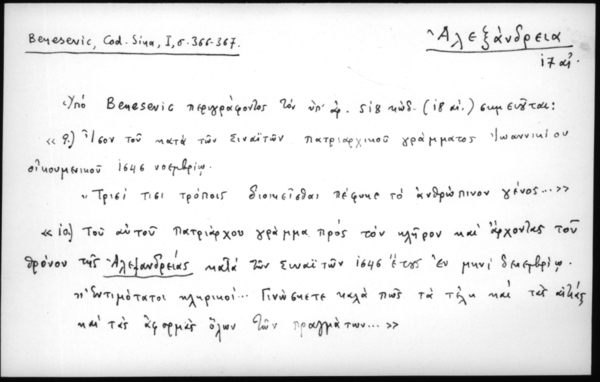 Benesevic, Cod. Sina, I, σ. 366-367.
Ἀλεξάνδρεια
17 αἰ.
Ὑπό Benesevic περιγράφοντος τόν ὑπ' ἀρ. 518 κώδ. (18 αἰ.) σημειοῦται:
«9.) Ἴσον τοῦ κατά τῶν Σιναϊτῶν πατριαρχικοῦ γράμματος Ἰωαννικίου
οἰκουμενικοῦ 1646 νοεμβρίῳ.
"Τρισί τισι τρόποις διοικεῖσθαι πέφυκε τό ἀνθρώπινον γένος...»
«10) Τοῦ αὐτοῦ πατριάρχου γράμμα πρός τόν κλῆρον καί ἄρχοντας τοῦ
θρόνου τῆς Ἀλεξανδρείας κατά τῶν Σιναϊτῶν 1646 ἔτους ἐν μηνί δεκεμβρίῳ.
"Ἐντιμότατοι κληρικοί... Γινώσκετε καλά πῶς τά τέλη καί τάς αἰτίας
καί τάς ἀφορμάς ὅλων τῶν πραγμάτων...»